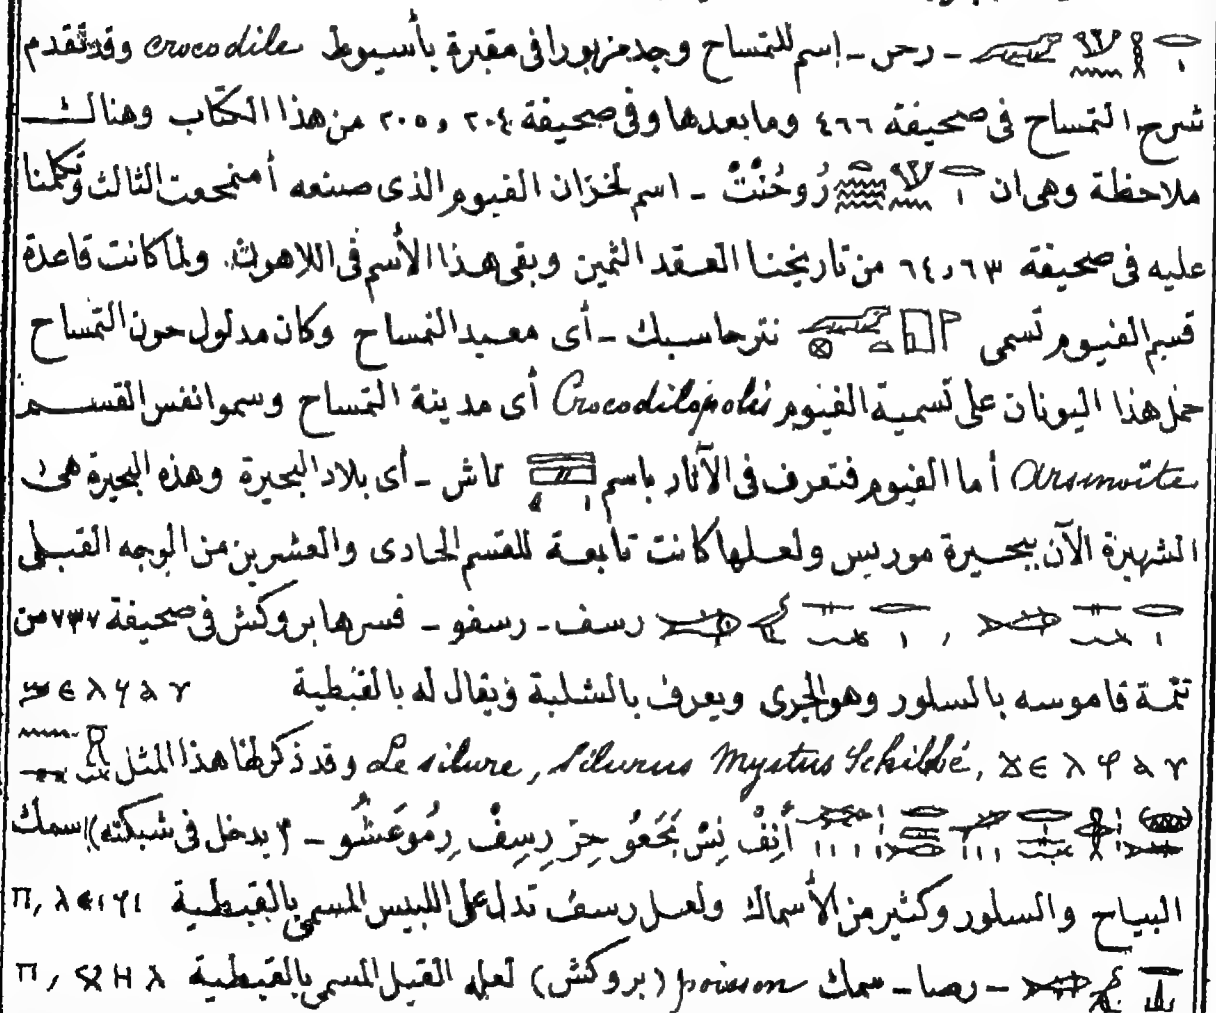 - رحس - إسم للتمساح وجد مزبورا فى مقبرة بأسيوط crocodile وقد تقدم
شرح التمساح فى صحيفة ٤٦٦ وما بعدها وفى صحيفة ٢٠٤ و ٢٠٥ من هذا الكتاب وهنالك
ملاحظة وهى ان رُوحُنْتْ - اسم لخزان الفيوم الذى صنعه أمنمحعت الثالث وتكلمنا
عليه فى صحيفة ٦٣ و ٦٤ من تاريخنا العقد الثمين وبقى هذا الأسم فى اللاهون ولما كانت قاعدة
قسم الفيوم تسمى نترحاسبك - أى معبد التمساح وكان مدلول حون التمساح
حمل هذا اليونان على تسمية الفيوم Crocodilopolis أى مدينة التمساح وسموا نفس القسم
Arsinoïte أما الفيوم فتعرف فى الآثار باسم تاش - أى بلاد البحيرة وهذه البحيرة هى
الشهيرة الآن ببحيرة موريس ولعلها كانت تابعة للقسم الحادى والعشرين من الوجه القبلى
رسف - رسفو - فسرها بروكش فى صحيفة ٧٣٧ من
تتمة قاموسه بالسلور وهو الجرى ويعرف بالشلبة ويقال له بالقبطية
Le silure, Silurus Mystus Schilbé, وقد ذكر لنا هذا المثل
أَنِفْ نِسْ حِرْ رِسِفْ رِمُوعَشُو - م يدخل فى شبكته) اسماك
البياح والسلور وكثير من الأسماك ولعل رسف تدل على اللبيس المسمى بالقبطية
- رصا - سمك poisson (بروكش) لعله القيل المسمى بالقبطية